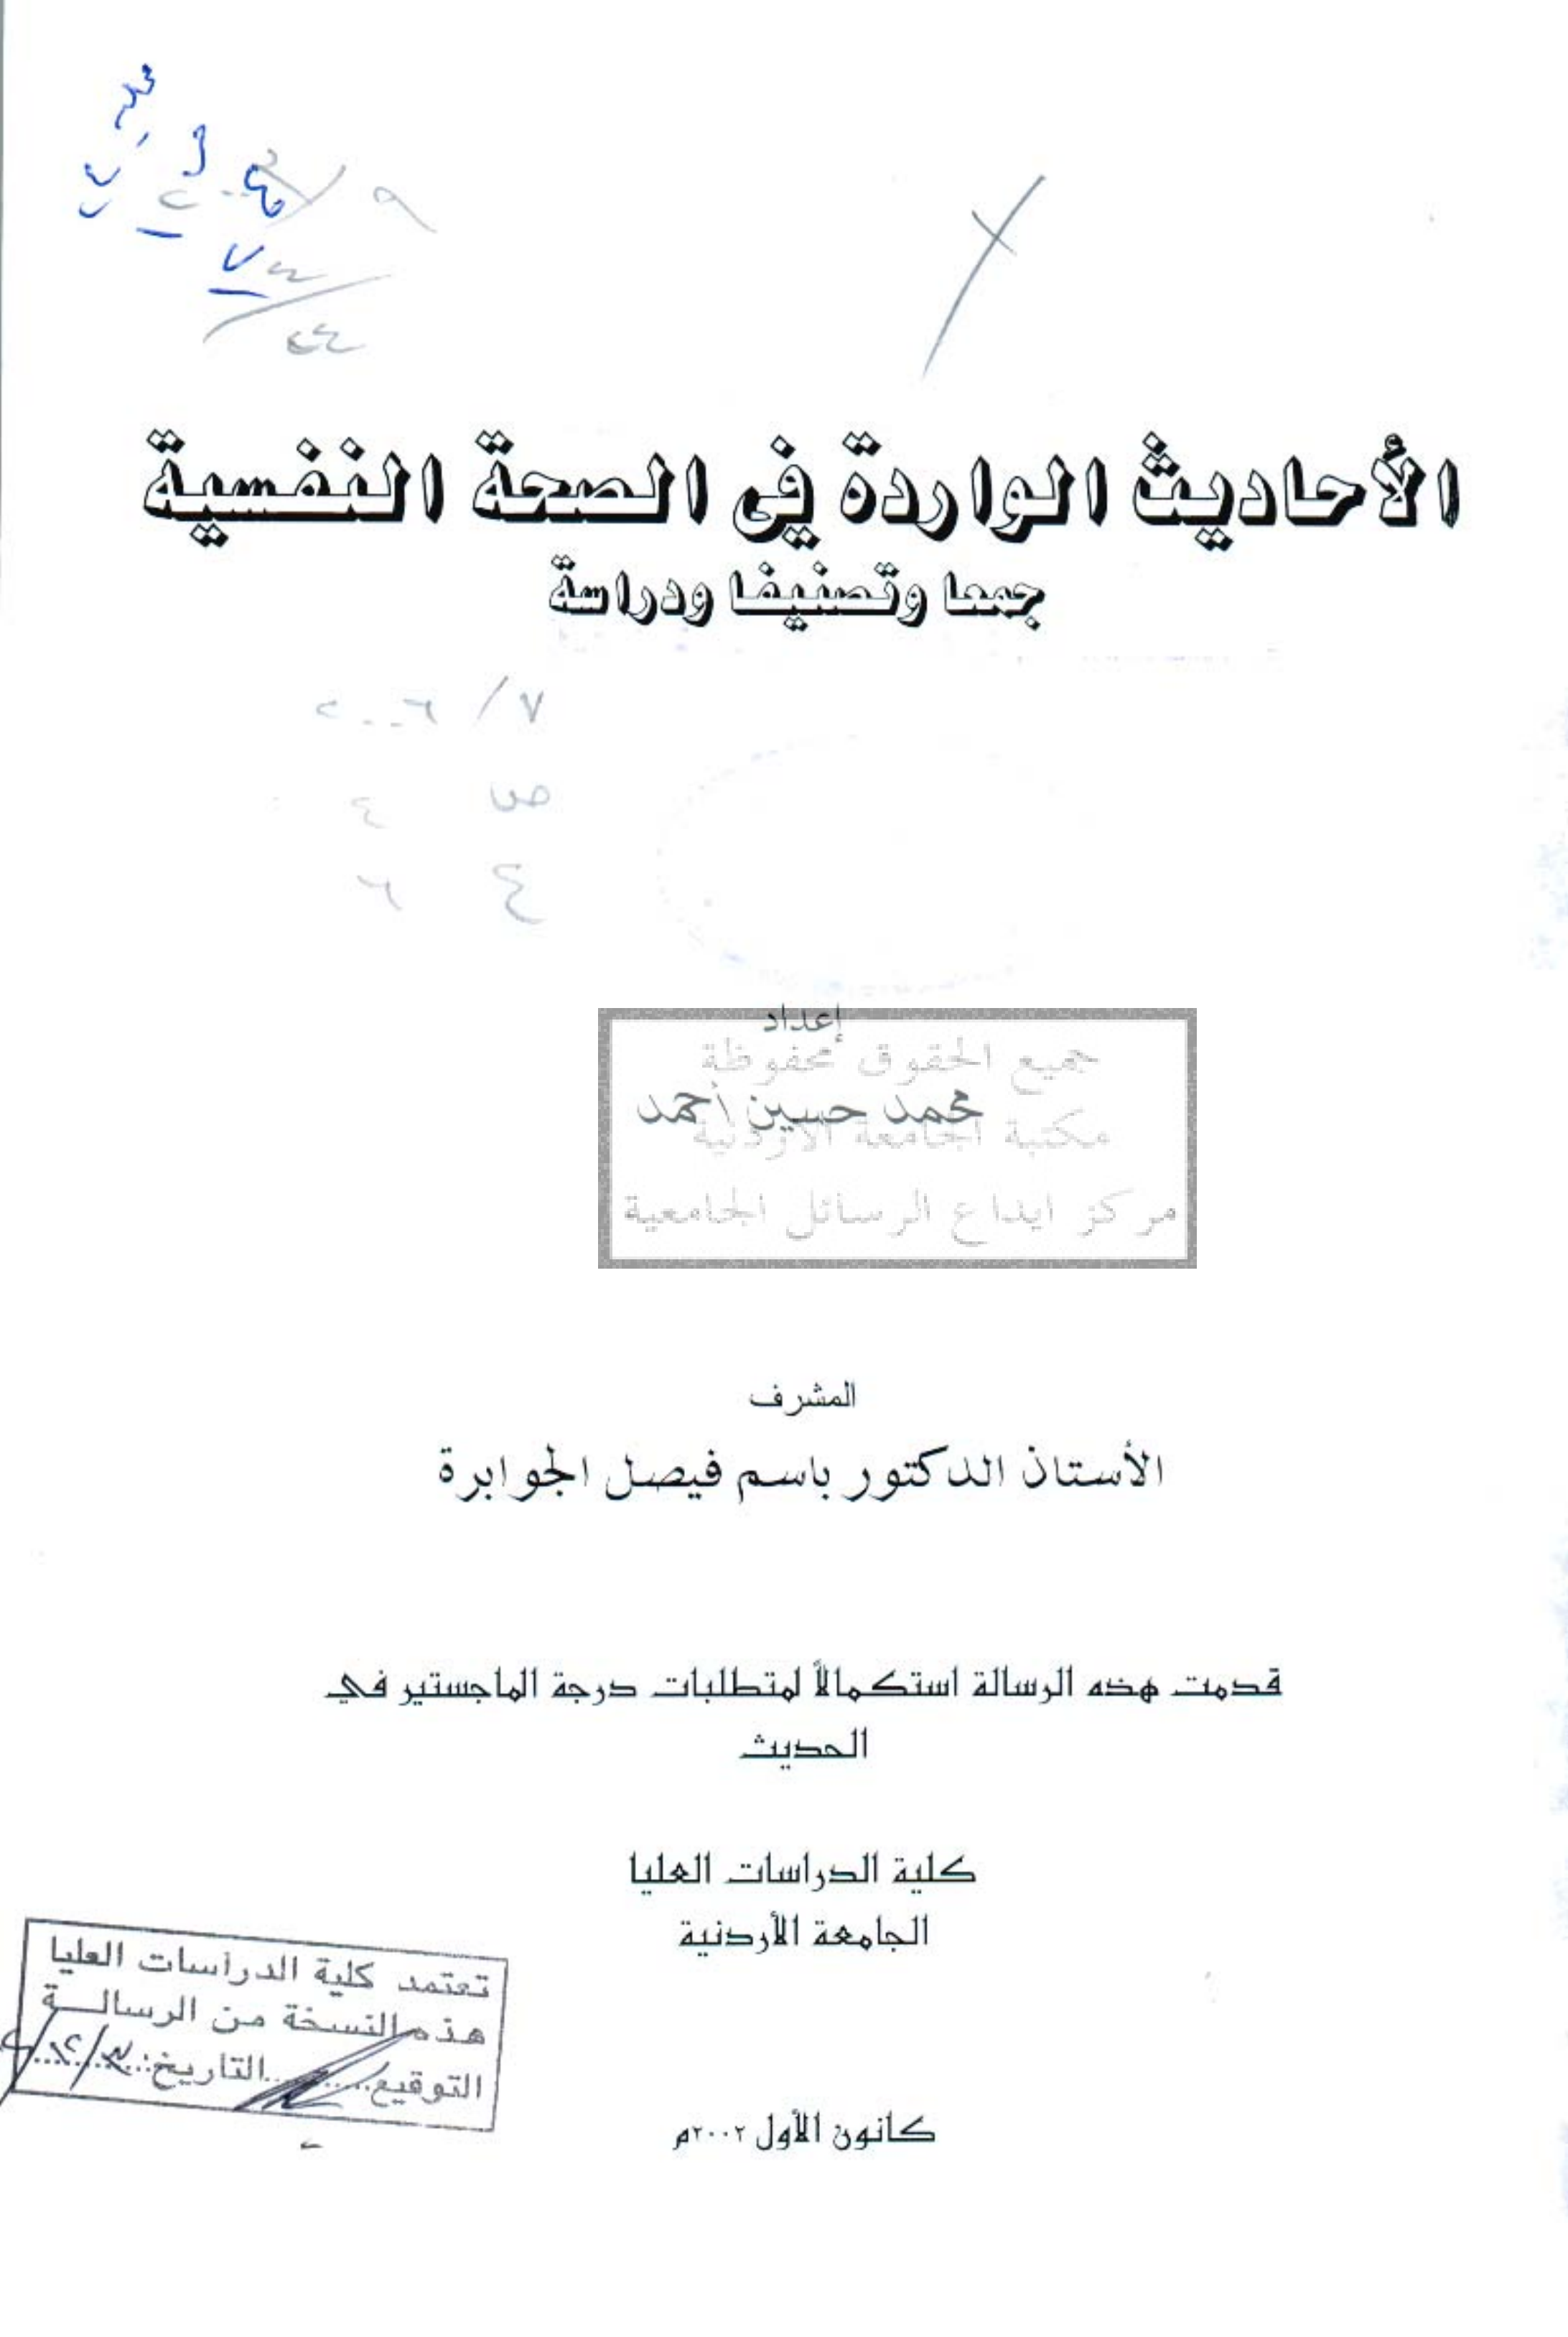 الأحاديث الواردة في الصحة النفسية
جمعا وتصنيفا ودراسة
٢٠٠٦ / ٧
ص ٤
٤ ٦
إعداد
جميع الحقوق محفوظة
محمد حسين أحمد
مكتبة الجامعة الاردنية
مركز ايداع الرسائل الجامعية
المشرف
الأستاذ الدكتور باسم فيصل الجوابرة
قدمت هذه الرسالة استكمالاً لمتطلبات درجة الماجستير في
الحديث
كلية الدراسات العليا
الجامعة الأردنية
تعتمد كلية الدراسات العليا
هذه النسخة من الرسالـــة
التوقيع............التاريخ:.........
كانون الأول ٢٠٠٢م